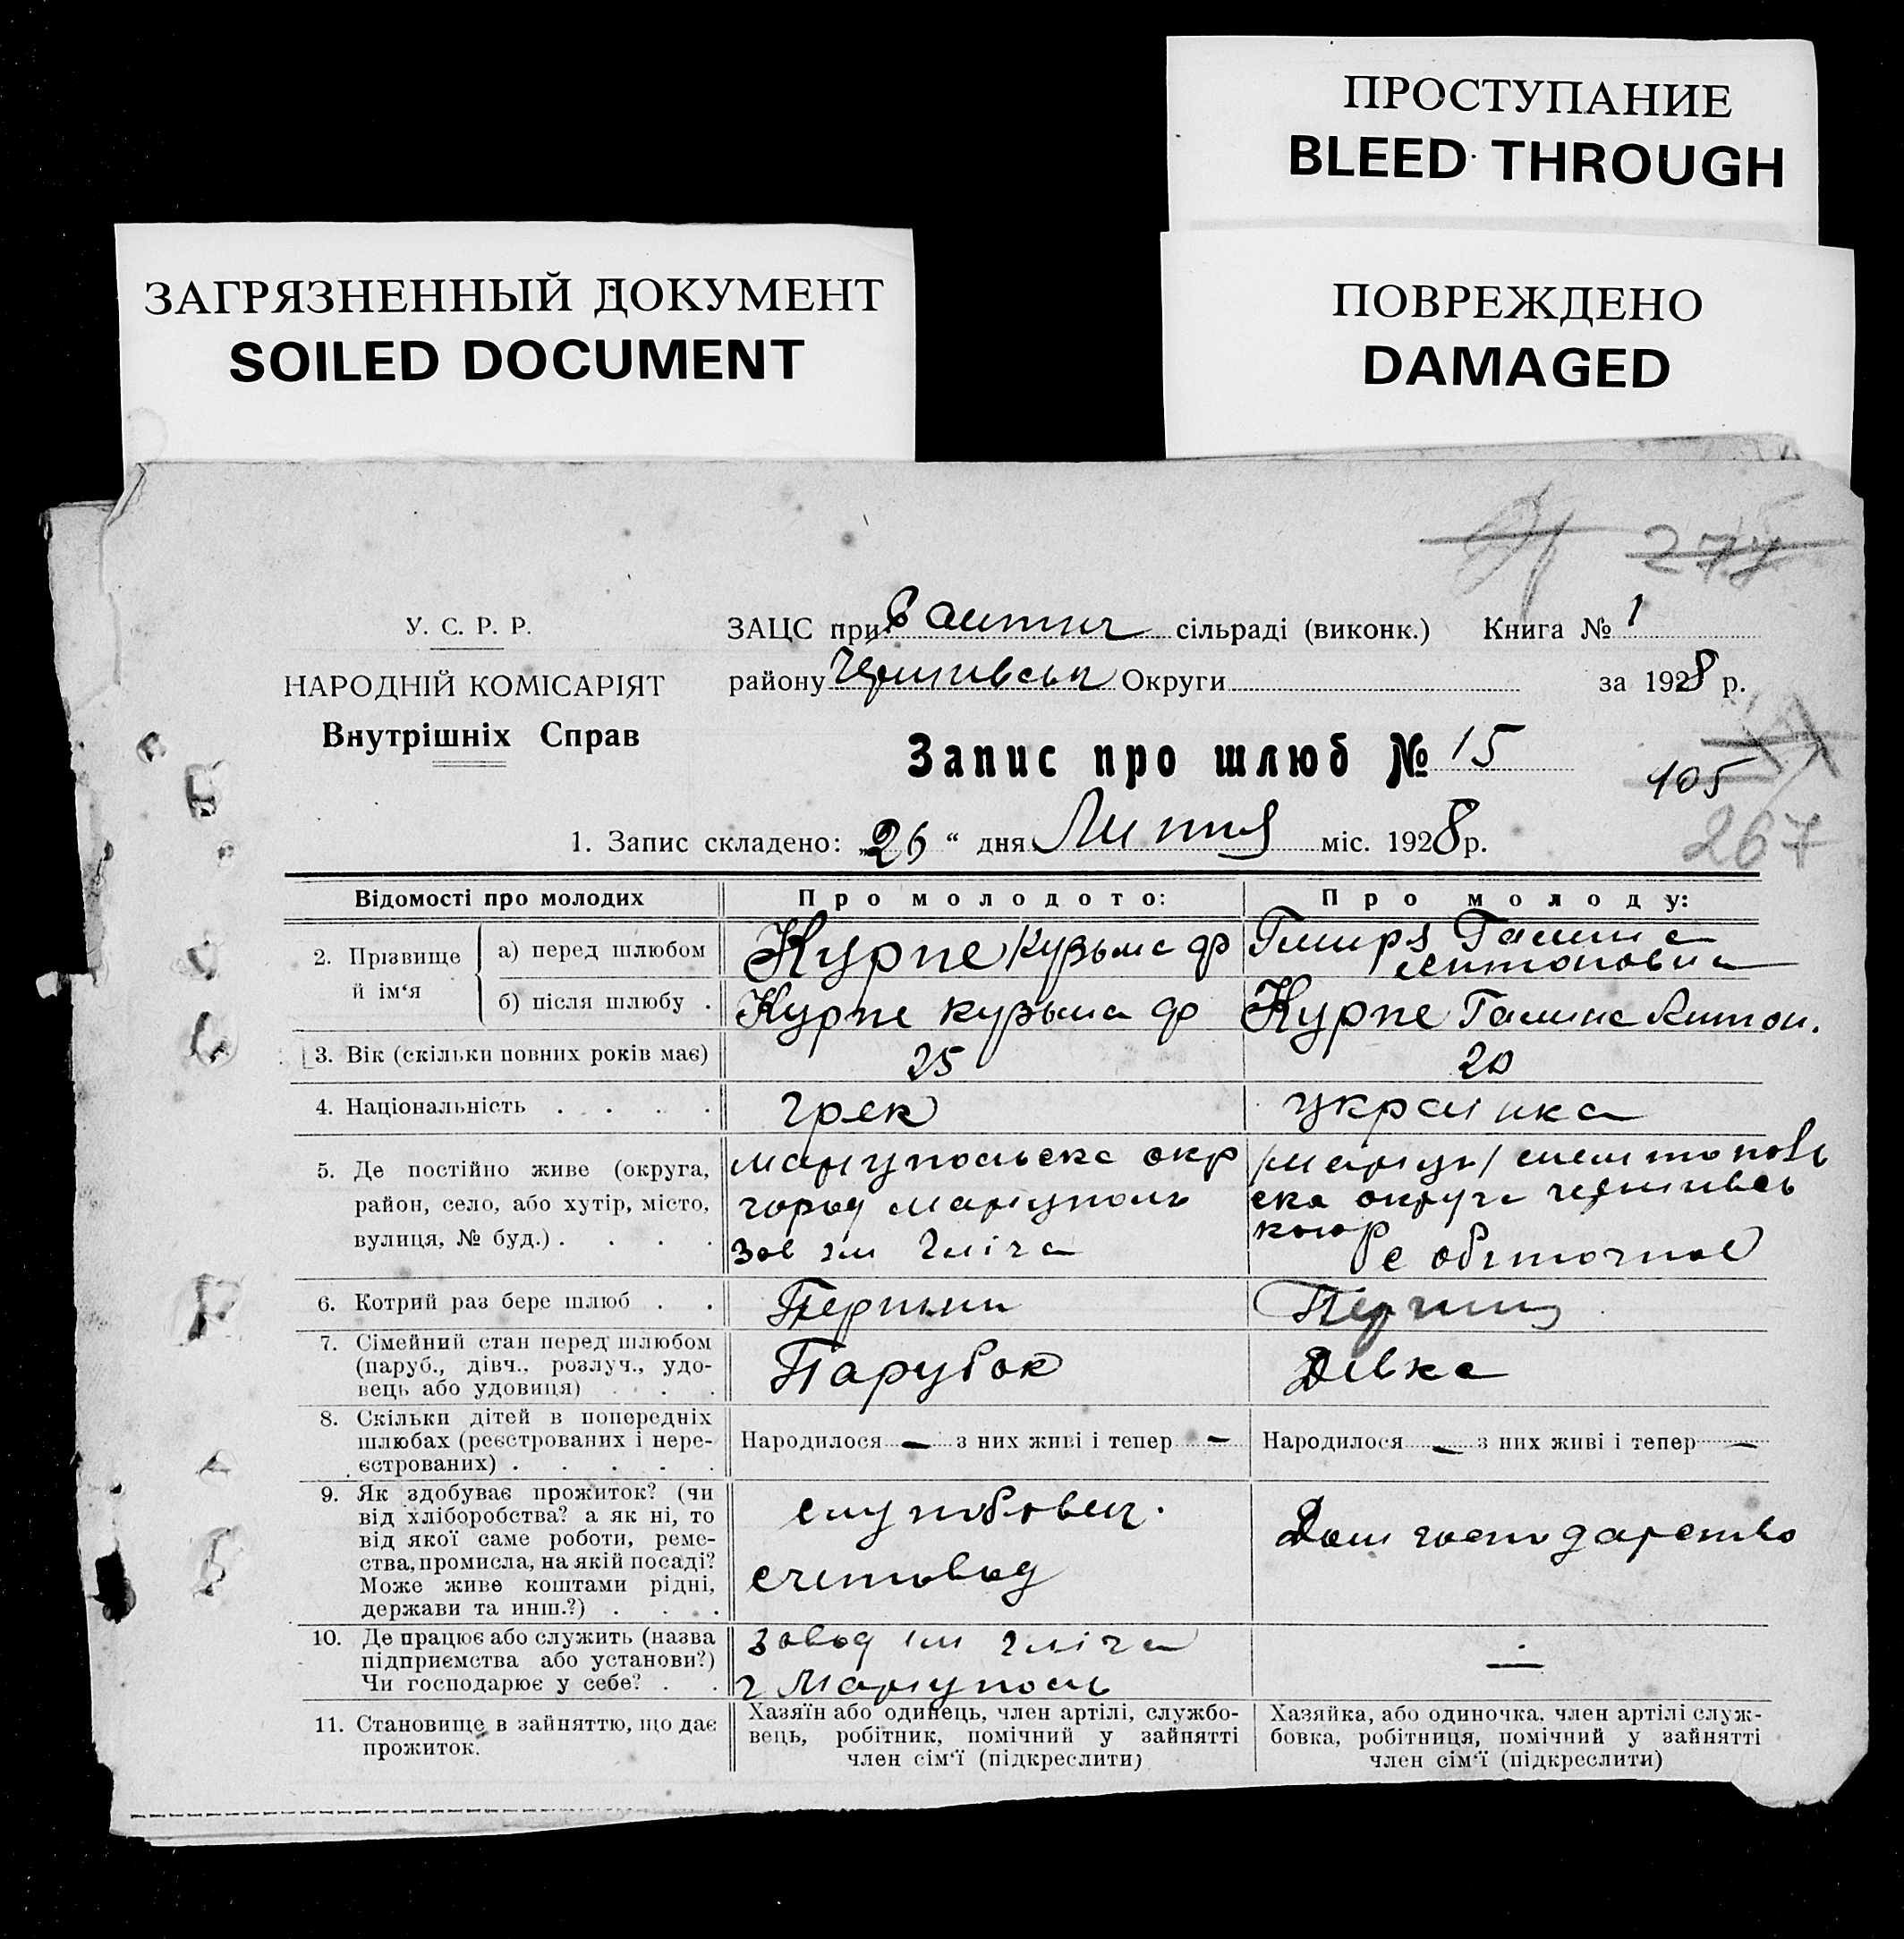 ПРОСТУПАНИЕ
BLEED THROUGH
ЗАГРЯЗНЕННЫЙ ДОКУМЕНТ
SOILED DOCUMENT
ПОВРЕЖДЕНО
DAMAGED
274
У. С. Р. Р.
НАРОДНІЙ КОМІСАРІЯТ
Внутрішніх Справ
ЗАЦС при сільраді (виконк.) Книга № 1
району Округи за 1928 р.
Запис про шлюб № 15
105
267
1. Запис складено: „26“ дня міс. 1928 р.
Відомості про молодих Про молодого: Про молоду:
2. Прізвище й ім‘я
а) перед шлюбом Курпе Кузьма ф Гмиря Галина
Антоновна
б) після шлюбу . Курпе Кузьма ф Курпе Галина Антон.
3. Вік (скільки повних років має) 25 20
4. Національність . . . . грек украінка
5. Де постійно живе (округа,
район, село, або хутір, місто,
вулиця, № буд.) . . . .
маріупольска окр
город маріуполь
зав ім Іліча
/маріуп/ мелітополь
ска округа
с обіточное
6. Котрий раз бере шлюб . . Перший
7. Сімейний стан перед шлюбом
(паруб., дівч., розлуч., удо-
вець або удовиця) . . .
Парубок Дівка
8. Скільки дітей в попередніх
шлюбах (реєстрованих і нере-
єстрованих) . . . . .
Народилося — з них живі і тепер — Народилося — з них живі і тепер —
9. Як здобуває прожиток? (чи
від хліборобства? а як ні, то
від якої саме роботи, реме-
ства, промисла, на якій посаді?
Може живе коштами рідні,
держави та инш.?) . . .
службовец.
счетовод
Дом господарство
10. Де працює або служить (назва
підприємства або установи?)
Чи господарює у себе? . .
завод ім Іліча
г Маріуполь
—
11. Становище в зайняттю, що дає
прожиток.
Хазяїн або одинець, член артілі, службо-
вець, робітник, помічний у зайнятті
член сім‘ї (підкреслити)
Хазяйка, або одиночка, член артілі служ-
бовка, робітниця, помічний у зайнятті
член сім‘ї (підкреслити)